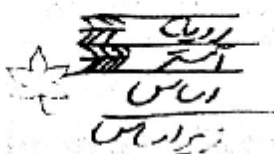 رویه
آستر
اساس
زیراساس